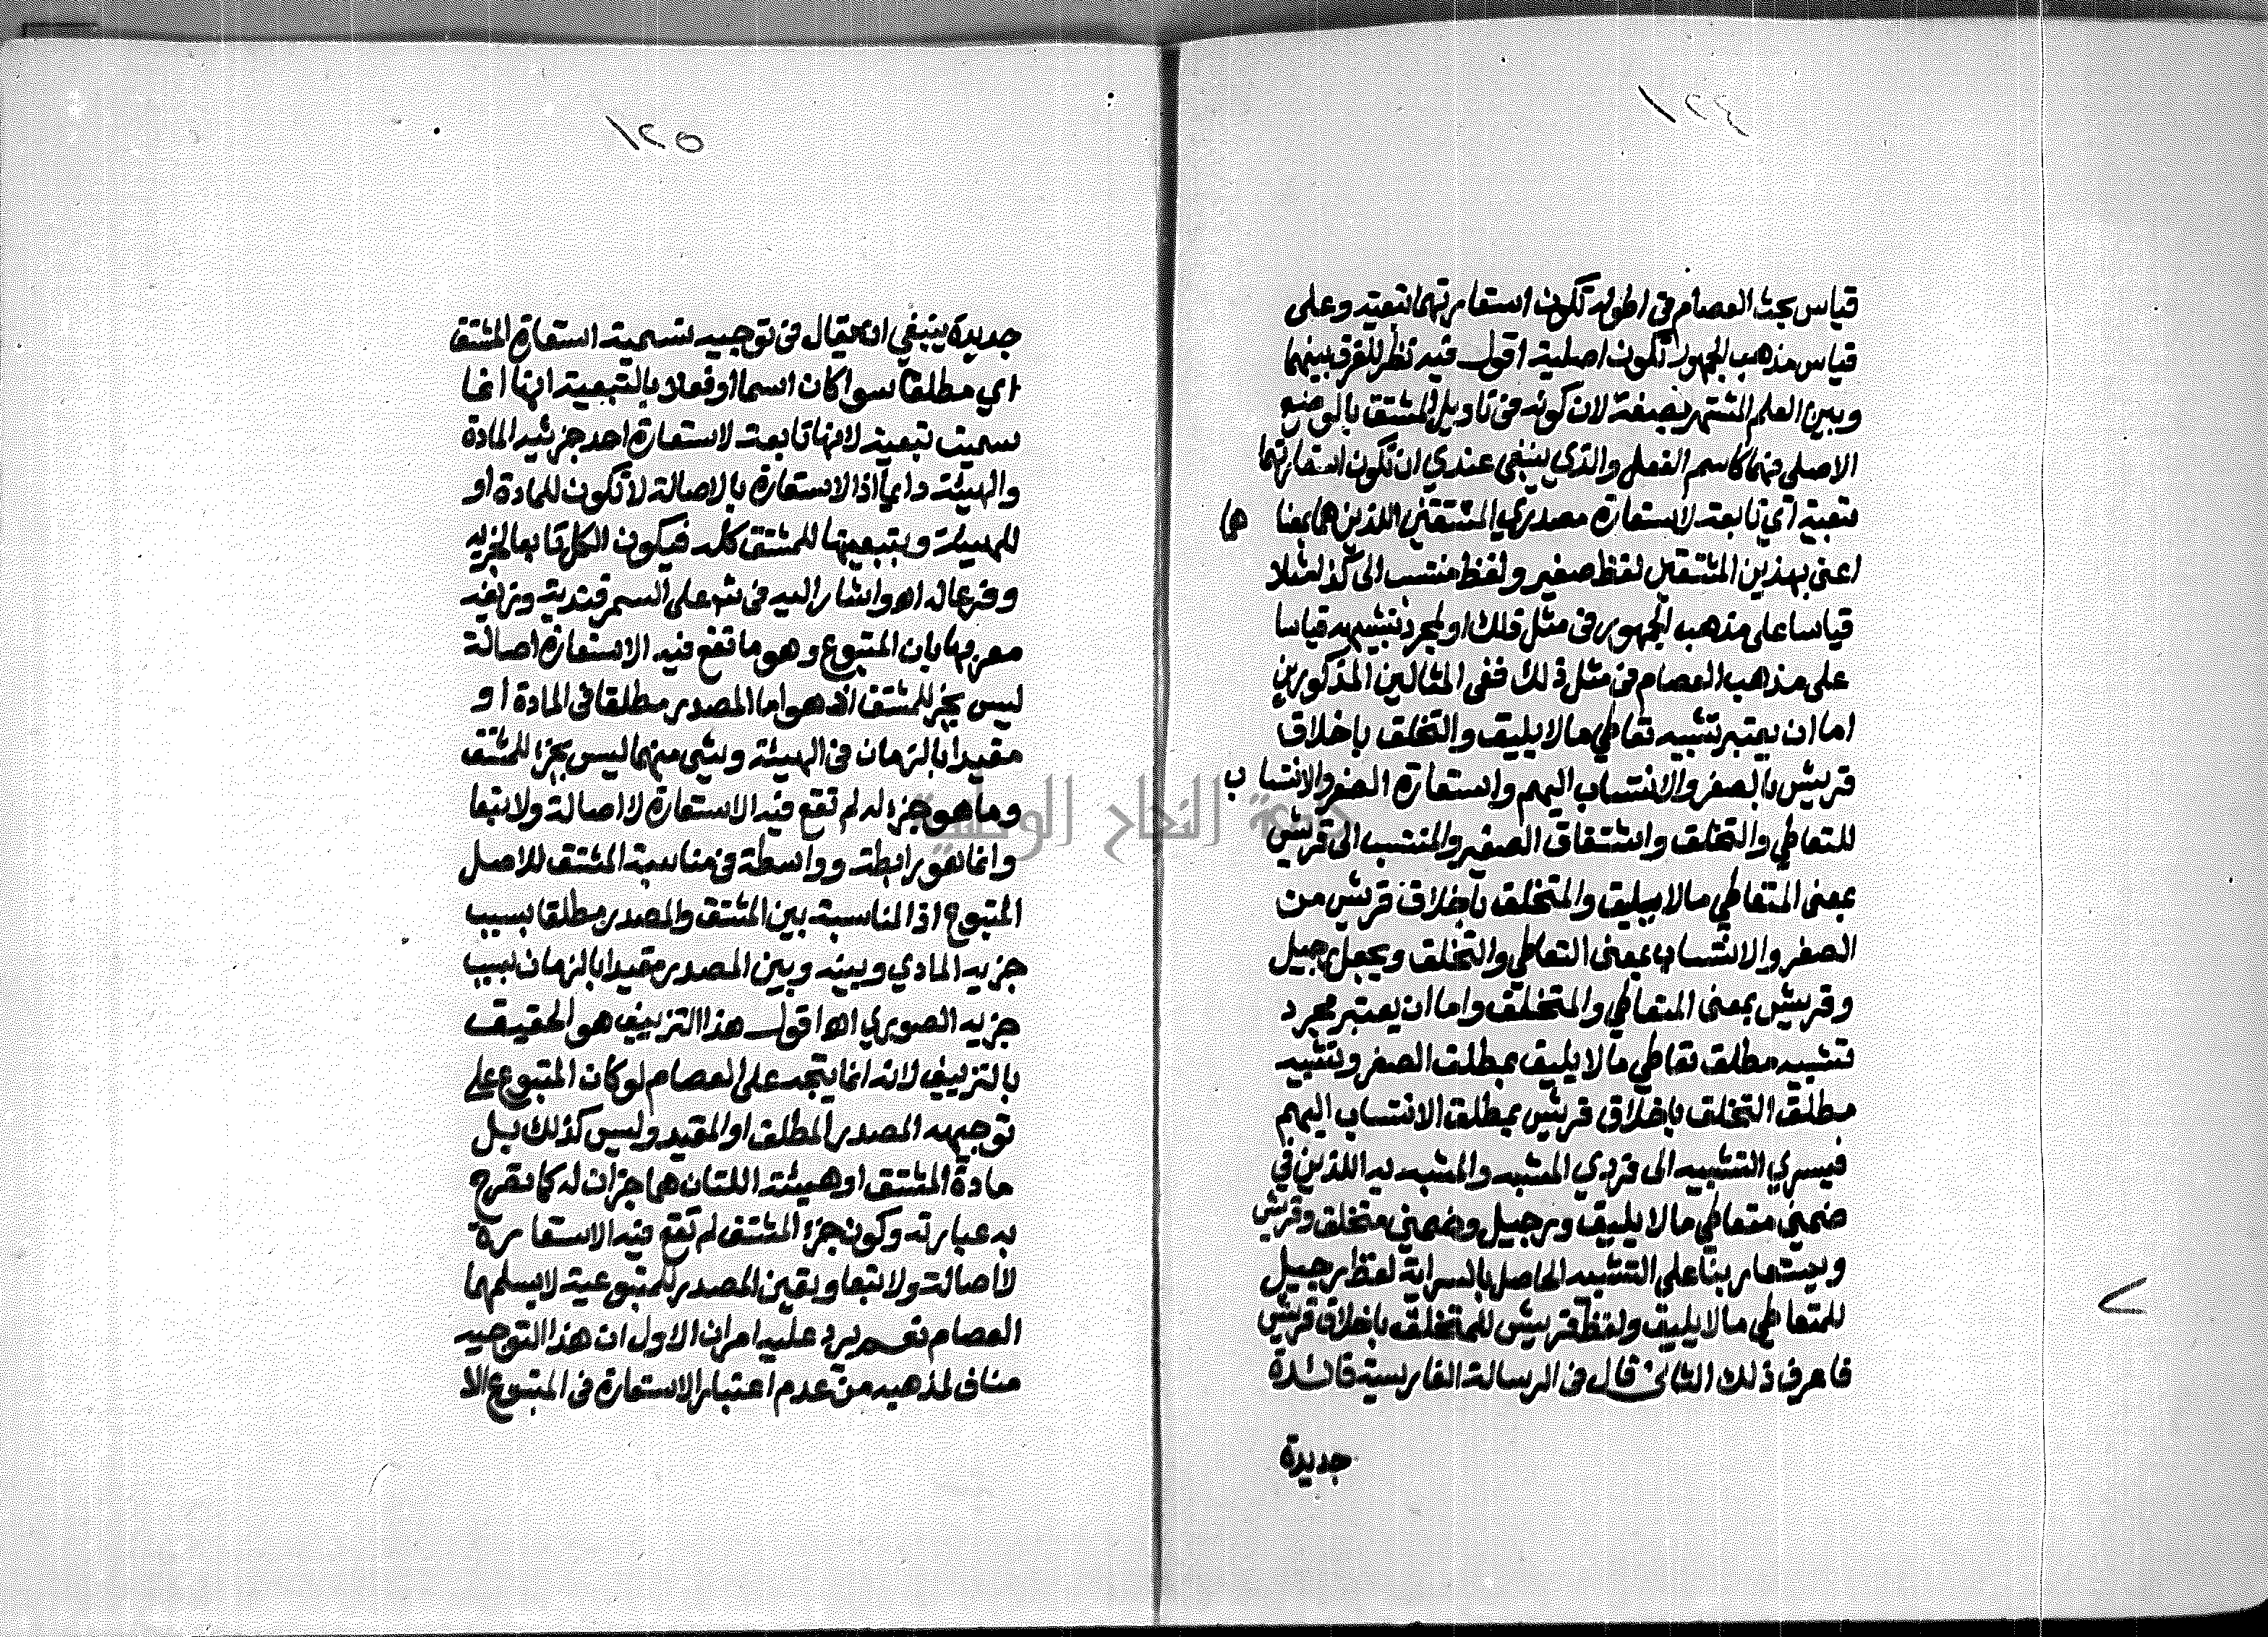 ١٢٤
قياس بحث العصام فى اطوله تكون استعارتهما تبعية وعلى
قياس مذهب الجمهور تكون اصلية اقول فيه نظر للفرق بينهما
وبين العلم المشتهر بصفة لان كونه فى تاويل المشتق بالوضع
الاصلى فهما كاسم الفعل والذي ينبغى عندي ان تكون استعارتهما
تبعية اي تابعة لاستعارة مصدري المشتقين اللذين هما بمعنا هما
اعنى بهذين المشتقين لفظ صغير ولفظ منتسب الى كذا مثلا
قياسا على مذهب الجمهور فى مثل ذلك او لمجرد تشبيه قياسا
على مذهب العصام فى مثل ذلك ففى المثالين المذكورين
اما ان يعتبر تشبيه تعاطي ما لا يليق والتخلق باخلاق
قريش بالصغر والانتساب اليهم واستعارة الصغر والانتساب
للتعاطي والتخلق واشتقاق الصغير والمنتسب الى قريش
بمعنى المتعاطي ما لا يليق والمتخلق باخلاق قريش من
الصغر والانتساب بمعنى التعاطي والتخلق ويجعل رجيل
وقريش بمعنى المتعاطي والمتخلق واما ان يعتبر مجرد
تشبيه مطلق تعاطي ما لا يليق بمطلق الصغر وتشبيه
مطلق التخلق باخلاق قريش بمطلق الانتساب اليهم
فيسري التشبيه الى فردي المشبه والمشبه به اللذين في
ضمنى متعاطي ما لا يليق ورجيل وضمنى متخلق وقريش
ويستعار بنا على التشبيه الحاصل بالسراية لفظ رجيل
للمتعاطي ما لا يليق ولفظ قريش للمتخلق باخلاق قريش
فاعرف ذلك الثانى قال فى الرسالة الفارسية فائدة
جديدة
١٢٥
جديدة ينبغي ان يقال فى توجيه تسمية استعارة المشتق
اي مطلقا سوا كان اسما او فعلا بالتبعية انها انما
سميت تبعية لانها تابعة لاستعارة احد جزئيه المادة
والهيئة دايما اذ الاستعارة بالاصالة لا تكون للمادة او
للهيئة وبتبعيتها للمشتق كله فيكون الكل تابعا لجزيه
وفرعا له اه واشار اليه فى شه على السمرقندية وزيفه
معربها بان المتبوع وهو ما تقع فيه الاستعارة اصالة
ليس بجز للمشتق اذ هو اما المصدر مطلقا فى المادة او
مقيدا بالزمان فى الهيئة وشى منهما ليس بجزء للمشتق
وما هو جزء له لم تقع فيه الاستعارة لا اصالة ولا تبعا
وانما هو رابطة وواسطة فى مناسبة المشتق للاصل
المتبوع اذ المناسبة بين المشتق والمصدر مطلقا بسبب
جزيه المادي وبينه وبين المصدر مقيدا بالزمان بسبب
جزيه الصوري اه اقول هذا التزييف هو الحقيق
بالتزييف لانه انما يتجه على العصام لو كان المتبوع على
توجيهه المصدر المطلق او المقيد وليس كذلك بل
مادة المشتق او هيئته اللتان هما جزان له كما تصرح
به عبارته وكون جزء المشتق لم تقع فيه الاستعارة
لا اصالة ولا تبعا وتعين المصدر للمتبوعية لا يسلمهما
العصام نعم يرد عليه امران الاول ان هذا التوجيه
مناف لمذهبه من عدم اعتبار الاستعارة فى المتبوع الا
جامعة النجاح الوطنية